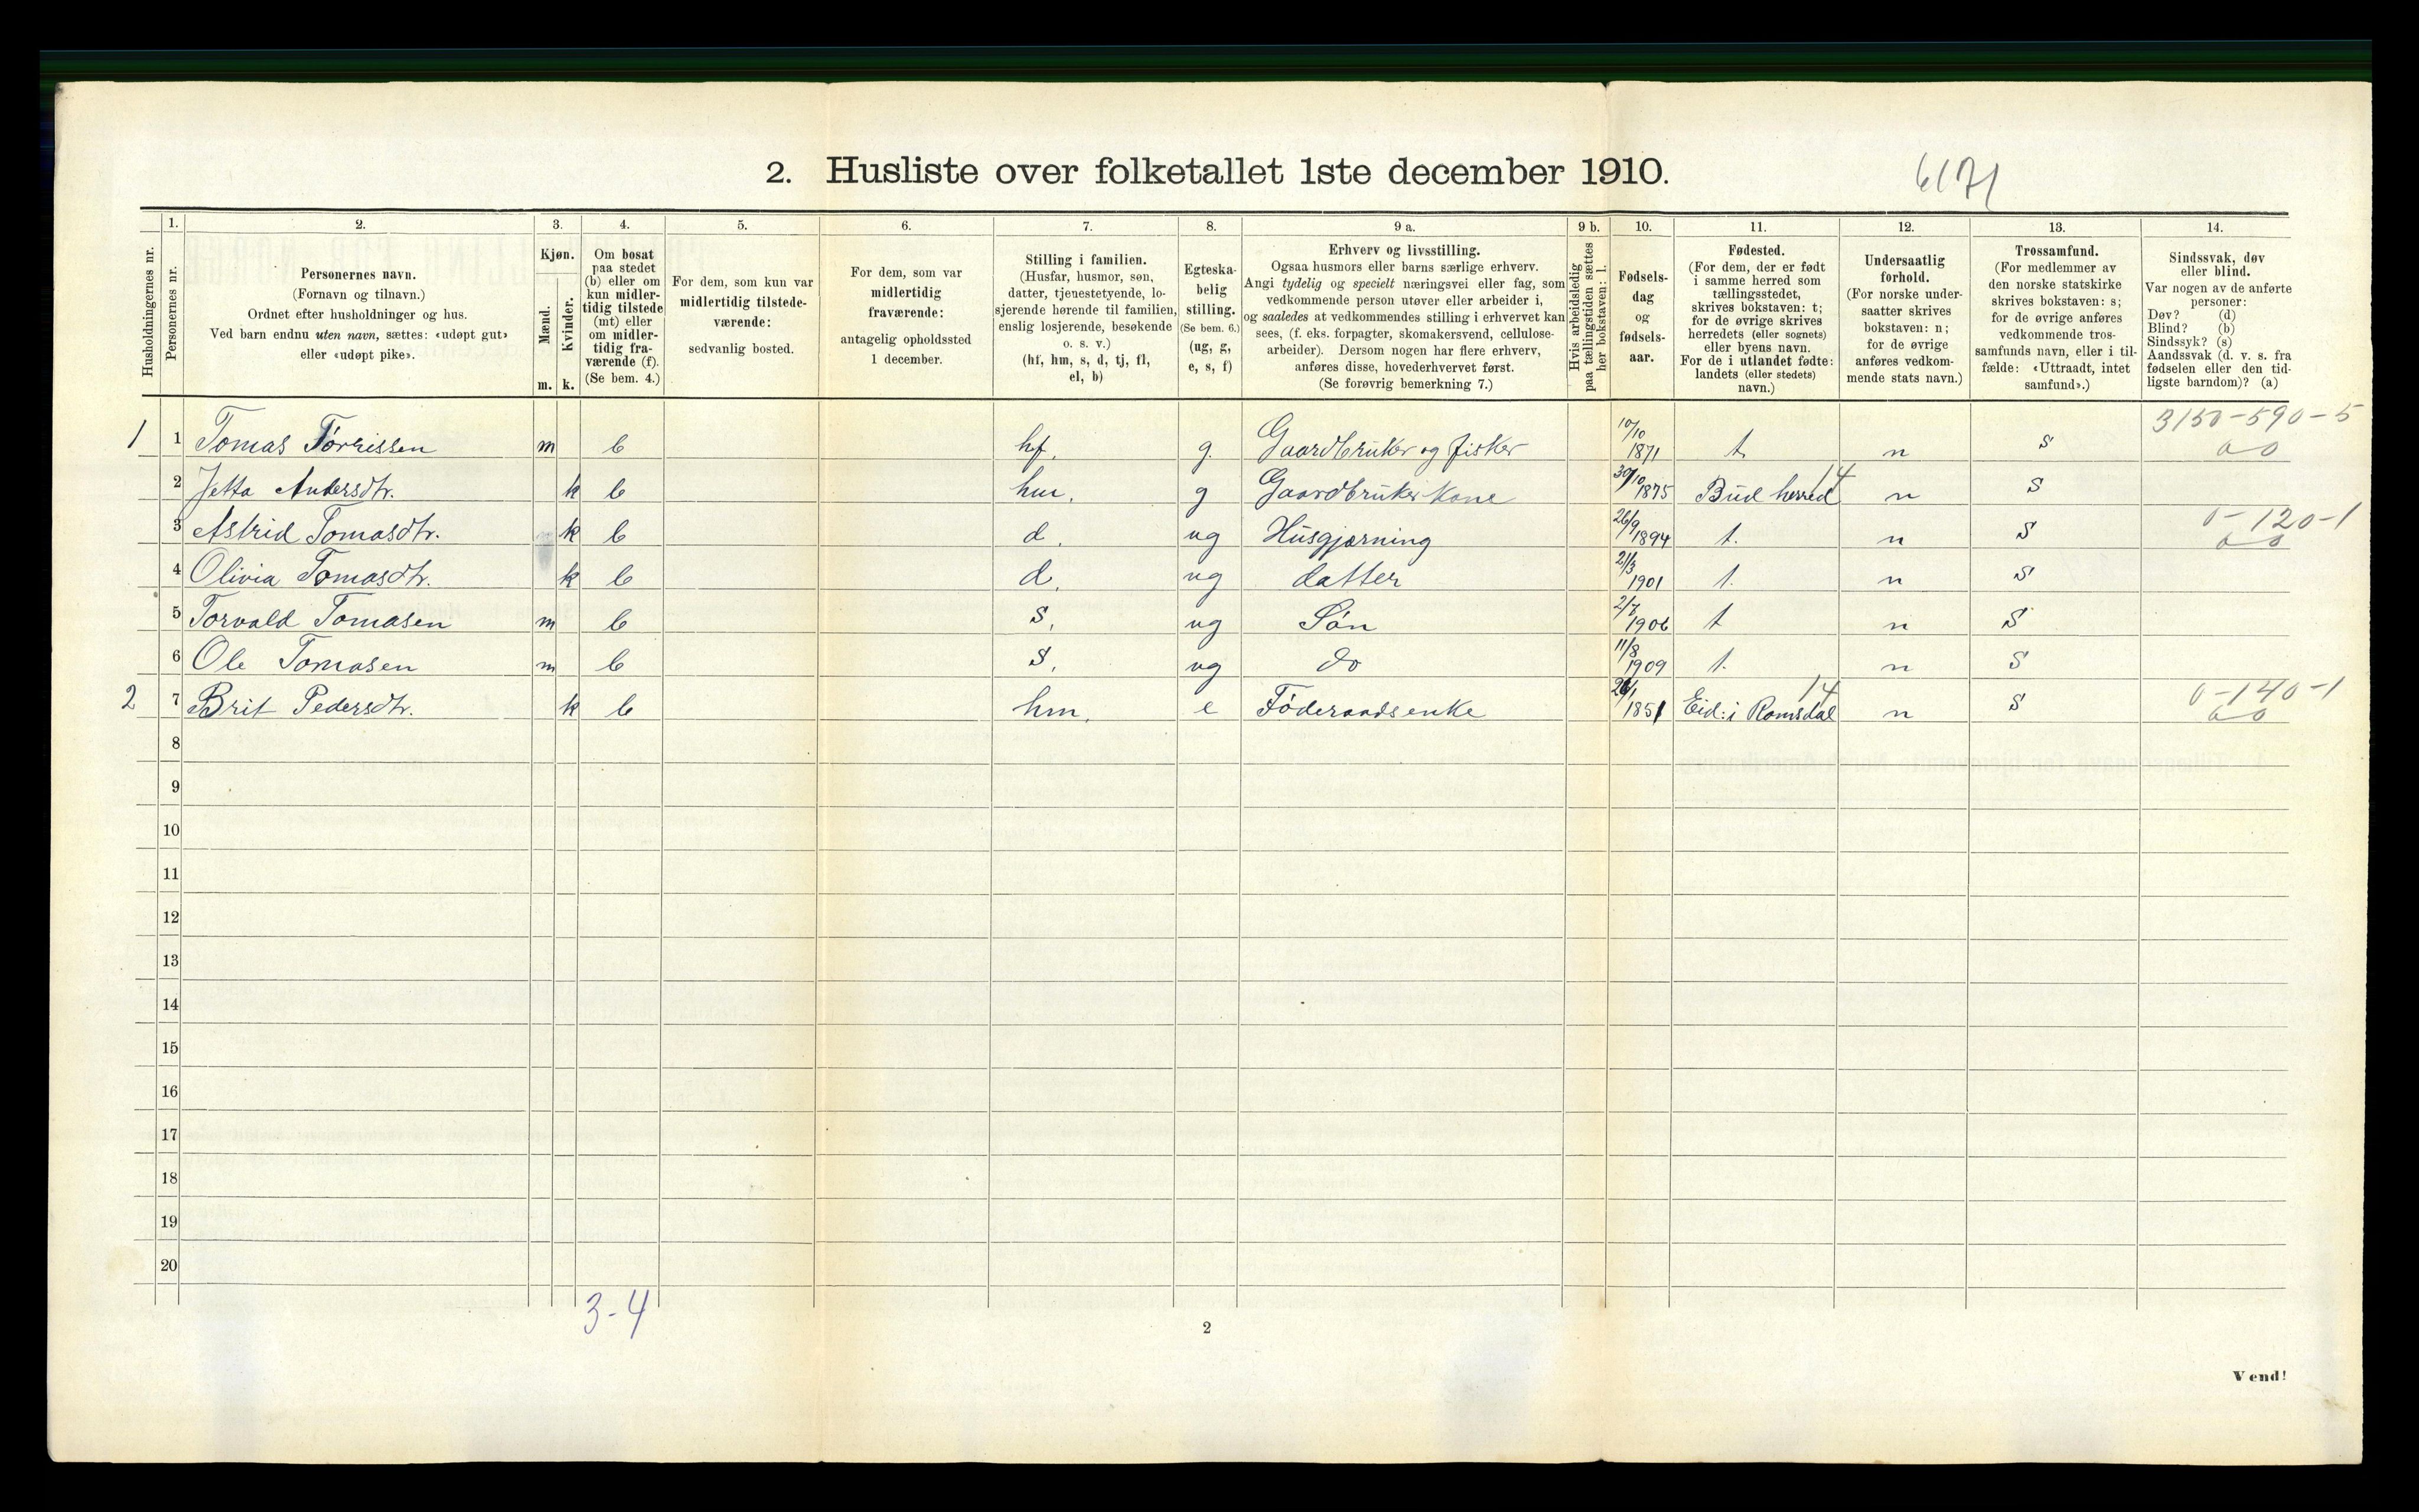 2. Husliste over folketallet 1ste december 1910.
6171
Husholdningernes nr.
1.
Personernes nr.
2.
Personernes navn.
(Fornavn og tilnavn.)
Ordnet efter husholdninger og hus.
Ved barn endnu uten navn, sættes: «udøpt gut»
eller «udøpt pike».
3.
Kjøn.
Mænd.
Kvinder.
m. k.
4.
Om bosat
paa stedet
(b) eller om
kun midler-
tidig tilstede
(mt) eller
om midler-
tidig fra-
værende (f).
(Se bem. 4.)
5.
For dem, som kun var
midlertidig tilstede-
værende:
sedvanlig bosted.
6.
For dem, som var
midlertidig
fraværende:
antagelig opholdssted
1 december.
7.
Stilling i familien.
(Husfar, husmor, søn,
datter, tjenestetyende, lo-
sjerende hørende til familien,
enslig losjerende, besøkende
o. s. v.)
(hf, hm, s, d, tj, fl,
el, b)
8.
Egteska-
belig
stilling.
(Se bem. 6.)
(ug, g,
e, s, f)
9 a.
Erhverv og livsstilling.
Ogsaa husmors eller barns særlige erhverv.
Angi tydelig og specielt næringsvei eller fag, som
vedkommende person utøver eller arbeider i,
og saaledes at vedkommendes stilling i erhvervet kan
sees, (f. eks. forpagter, skomakersvend, cellulose-
arbeider). Dersom nogen har flere erhverv,
anføres disse, hovederhvervet først.
(Se forøvrig bemerkning 7.)
9 b.
Hvis arbeidsledig
paa tællingstiden sættes
her bokstaven: l.
10.
Fødsels-
dag
og
fødsels-
aar.
11.
Fødested.
(For dem, der er født
i samme herred som
tællingsstedet,
skrives bokstaven: t;
for de øvrige skrives
herredets (eller sognets)
eller byens navn.
For de i utlandet fødte:
landets (eller stedets)
navn.)
12.
Undersaatlig
forhold.
(For norske under-
saatter skrives
bokstaven: n;
for de øvrige
anføres vedkom-
mende stats navn.)
13.
Trossamfund.
(For medlemmer av
den norske statskirke
skrives bokstaven: s;
for de øvrige anføres
vedkommende tros-
samfunds navn, eller i til-
fælde: «Uttraadt, intet
samfund».)
14.
Sindssvak, døv
eller blind.
Var nogen av de anførte
personer:
Døv? (d)
Blind? (b)
Sindssyk? (s)
Aandssvak (d. v. s. fra
fødselen eller den tid-
ligste barndom)? (a)
1 1 Tomas Torrissen m b hf. g. Gaardbruker og fisker 10/10 1871 t. n s 3150-590-5 0 0
2 Jetta Andersdtr. k b hm. g Gaardbruker Kone 30/10 1875 Bud herred 14 n s
3 Astrid Tomasdtr. k b d. ug Husgjerning 26/9 1894 t. n s 0-120-1 0 0
4 Olivia Tomasdtr. k b d. ug datter 21/3 1901 t. n s
5 Torvald Tomasen m b s. ug Søn 2/7 1906 t n s
6 Ole Tomasen m b s. ug do 11/8 1909 t. n s
2 7 Brit Pedersdtr. k b hm. e Føderaadsenke 1851 Eid: i Romsdal 14 n s 0-140-1 0 0
8
9
10
11
12
13
14
15
16
17
18
19
20
3-4
2
Vend!